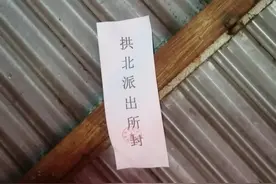 拱北派出所封